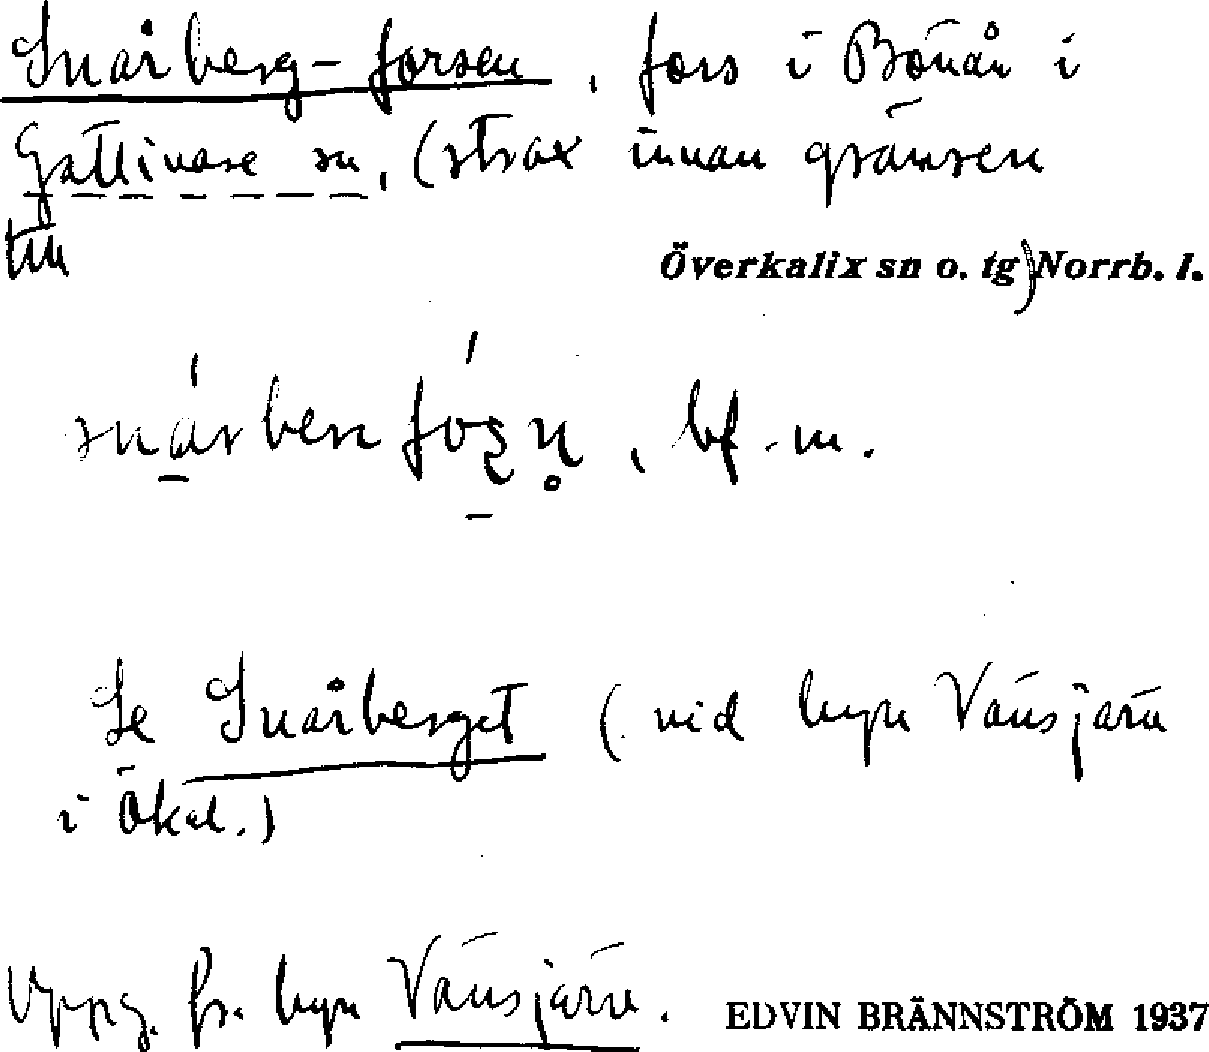 Snårberg-forsen, fors i Bönån i
Gällivare sn, (strax innan gränsen
till Överkalix sn o. tg) Norrb. l.
snárbenfósn̥, bf. m.
Se Snårberget (vid byn Vänsjärv
i Ökal.)
Uppg. fr. byn Vänsjärv. EDVIN BRÄNNSTRÖM 1937